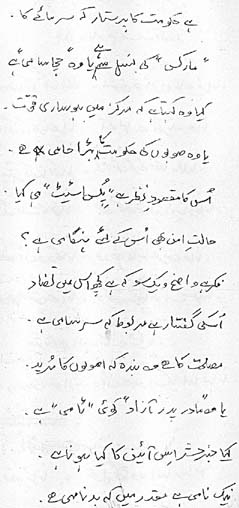 ہے حکومت کا پرستار کہ سرمائے کا۔
"مارکس" کی ہے یا وہ "چچا سامی" ہے
کیا وہ کہتا ہے کہ مرکز میں ہو ساری قوّت۔
یا وہ صوبوں کی حکومت کا بڑا حامی ہے۔
اُس کا مقصودِ نظر ہے "پولیس اسٹیٹ" ہی کیا۔
حالتِ امن بھی اُس کے لئے ہنگامی ہے؟
فکر ہے واضح و یک سو کہ ہے کچھ اس میں تضاد
اُسکی گفتار ہے مربوط کہ سرسامی ہے۔
مصلحت کا ہے وہ بندہ کہ اصولوں کا مُرید۔
یا وہ "مادر پدر آزاد" کوئی "ٹامی" ہے۔
کیا خبر حشر اِس آئین کا کیا ہونا ہے۔
نیک نامی ہے مقدر میں کہ بدنامی ہے۔